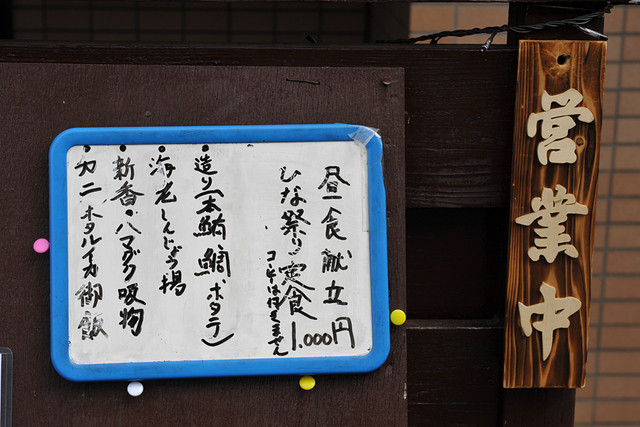 昼食献立
ひな祭り定食
1.000円
コーヒーは付きません
・造り(本鮪 鯛、ホタテ)
・海老しんじょう揚
・新香・ハマグリ吸物
・カニ ホタルイカ御飯
営業中